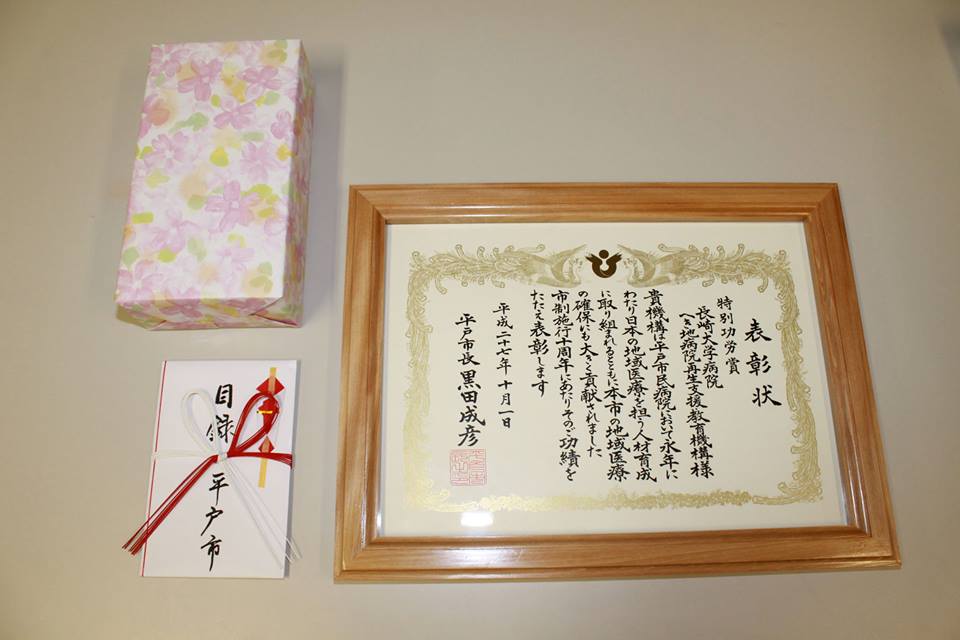 表彰状
特別功労賞
長崎大学病院
へき地病院再生支援・教育機構様
貴機構は平戸市民病院において永年に
わたり日本の地域医療を担う人材育成
に取り組まれるとともに本市の地域医療
の確保にも大きく貢献されました
市制施行十周年にあたりそのご功績を
たたえ表彰します
平成二十七年十月一日
平戸市長 黒田成彦
目録
平戸市